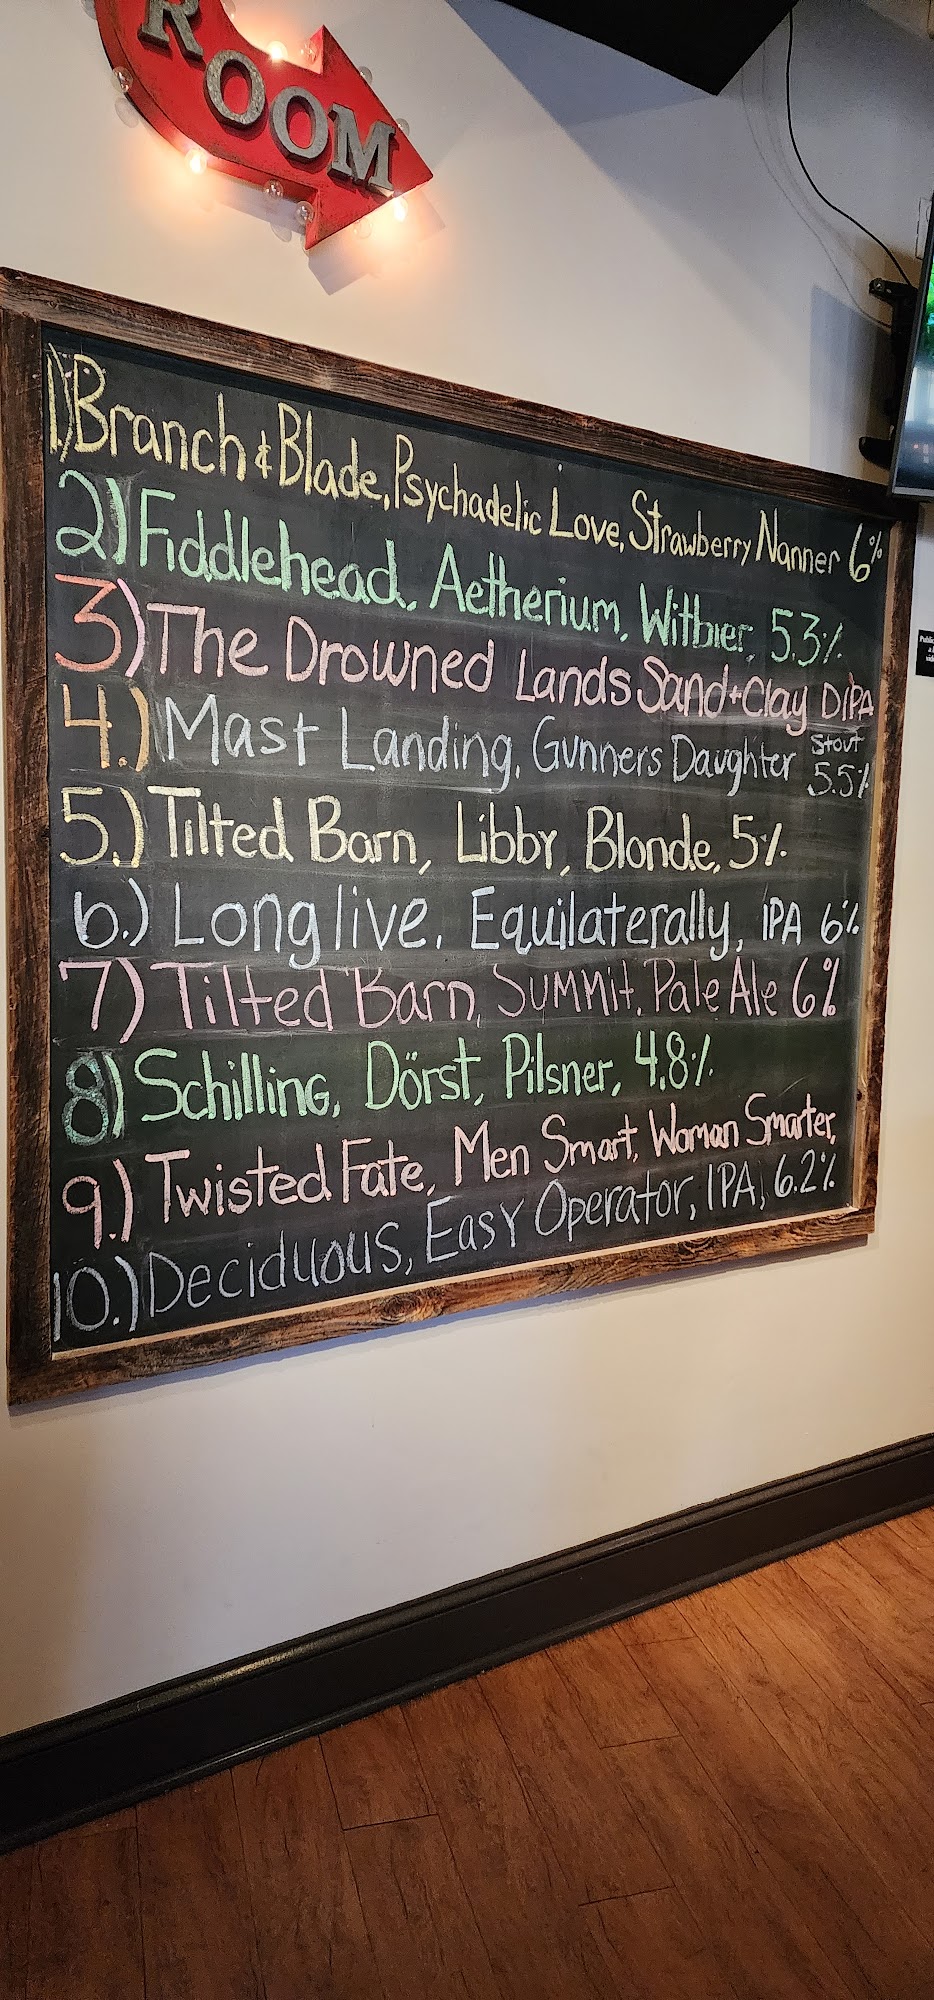 ROOM
1.) Branch & Blade, Psychadelic Love, Strawberry Nanner 6%
2) Fiddlehead, Aetherium, Witbier, 5.3%
3) The Drowned Lands Sand + Clay DIPA
4.) Mast Landing, Gunners Daughter Stout 5.5%
5.) Tilted Barn, Libby, Blonde, 5%
6.) Long live, Equilaterally, IPA 6%
7) Tilted Barn, Summit, Pale Ale 6%
8) Schilling, Dörst, Pilsner, 4.8%
9.) Twisted Fate, Men Smart, Woman Smarter,
10.) Deciduous, Easy Operator, IPA, 6.2%